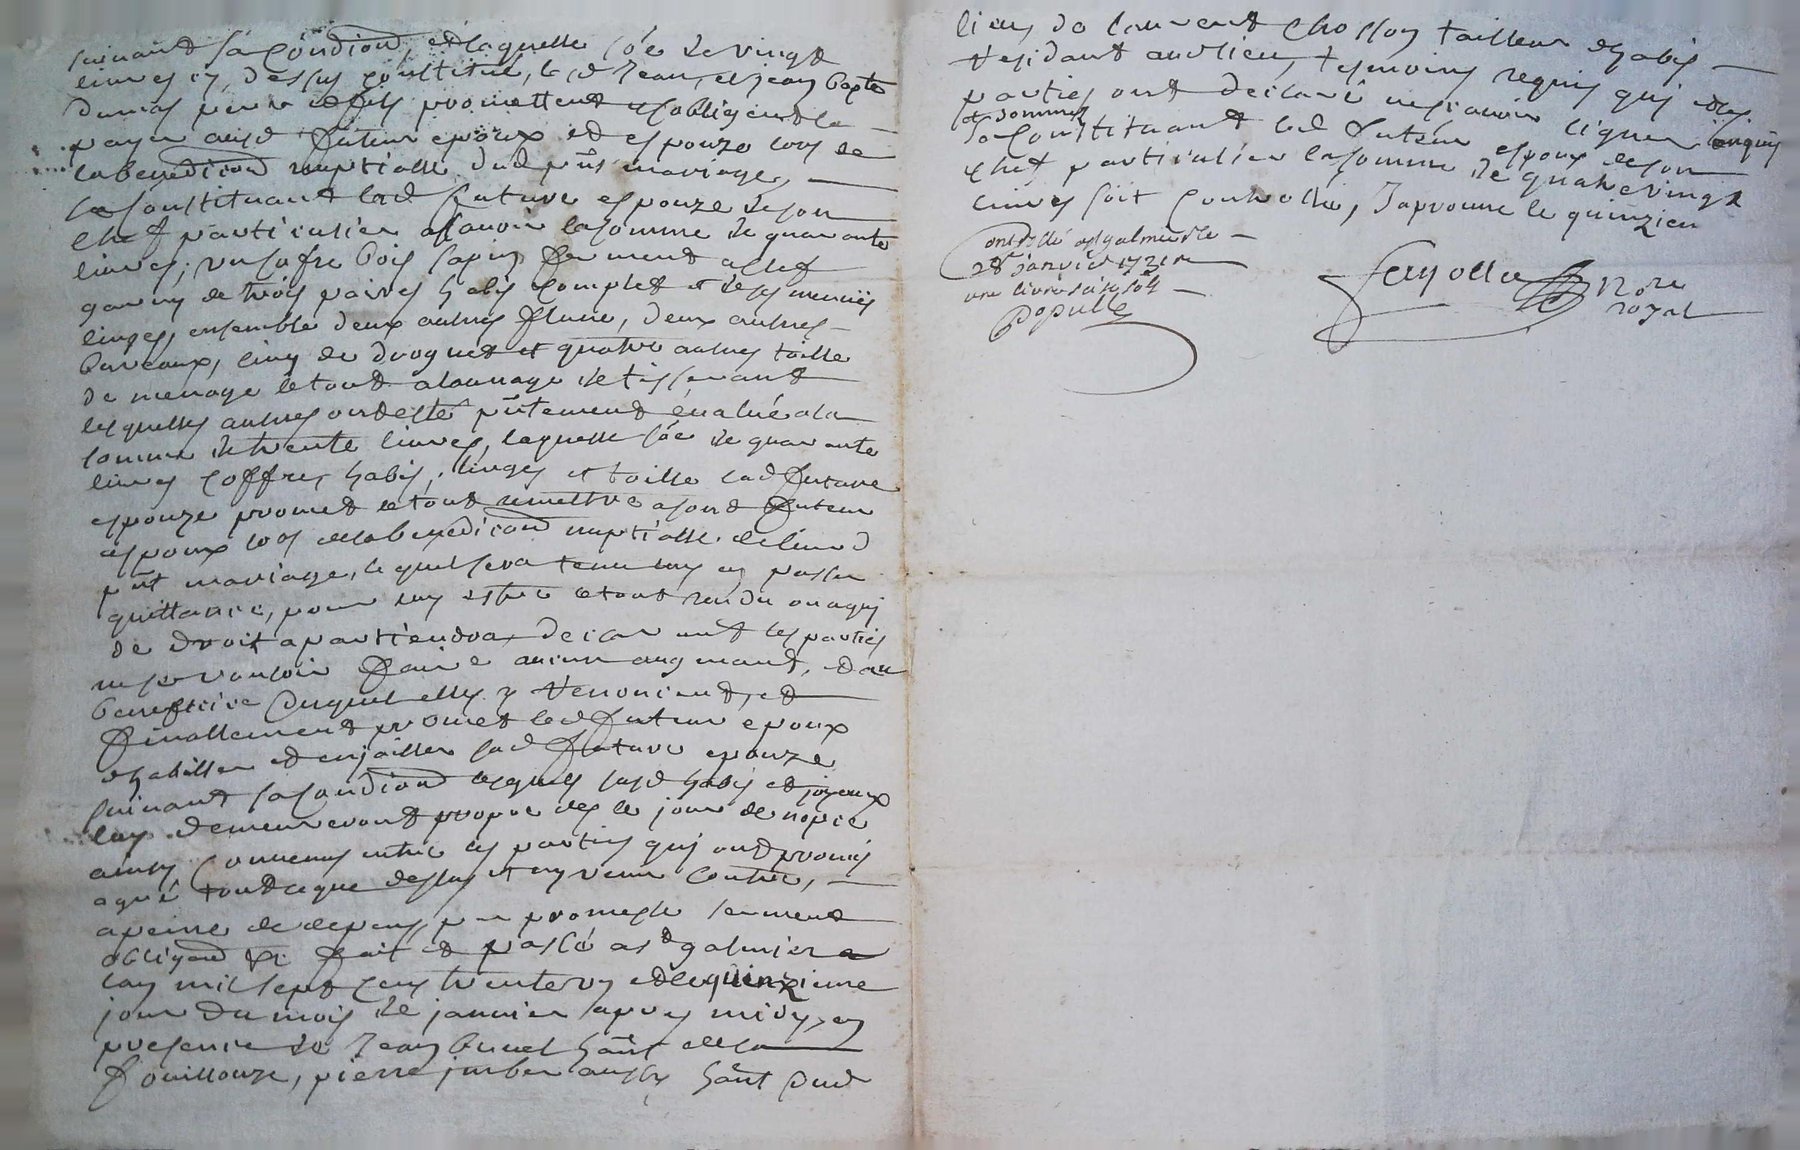 suivant sa condiōn, et laquelle sôe de vingt
livres cy dessus constitué, led Jean, et jean bapte
dumas pere et fils promettent et sobligent de
payer ausd futeur epoux et espouze lors de
la benediction nuptialle dud pnt mariage,
se constituant lad future espouze de son
chef particulier assavoir la somme de quarante
livres, un cofre bois sapin fermant a clef
garny de trois paires habis complet et de ses menus
linges, ensemble deux aulnes, deux aulnes
cinq de droguet et quatre aulnes toille
de menage le tout a launage de tisserand
lesquelles aulnes ont esté pntement évalué a la
somme de trente livres, laquelle sôe de quarante
livres coffre, habis, linges et toille lad future
espouze promet le tout remettre a sond futeur
espoux lors de la benediction nuptialle de leurd
pnt mariage, lequel sera tenu luy en passer
quittance, pour luy estre le tout rendu ou a qui
de droit apartiendra, declarant les parties
ne vouloir faire aucun augmant, et au
benefice duquel elles y renoncent, et
finallement promet led futeur epoux
dhabiller et enjoailler sad future epouze
suivant sa condiōn lesquels susd habis et joyeaux
luy demeureront propre des le jour de nopce
ainsy convenus entre les parties quy ont promis
agréé tout ce que dessus et ny venir contre,
a peine de depens par promesse serment
obligaōn &c fait et passé a st galmier
lan mil sept cens trente un et le quinzieme
jour du mois de janvier apres midy, en
presence de Jean brunel hānt de la
fouillouze, pierre jmber aussy hānt dud
lieu, de laurent chosson tailleur dhabis
residant aud lieu, tesmoins requis quy et les
parties ont declaré ne scavoir signer enquis
et sommés
se constituant led futeur espoux de son
chef particulier la somme de quatre vingt
livres soit controllé, Japrouve le quinzien
controllé a st galmier le
28e janvier 1731 R
une livre
Populle
nore
royal